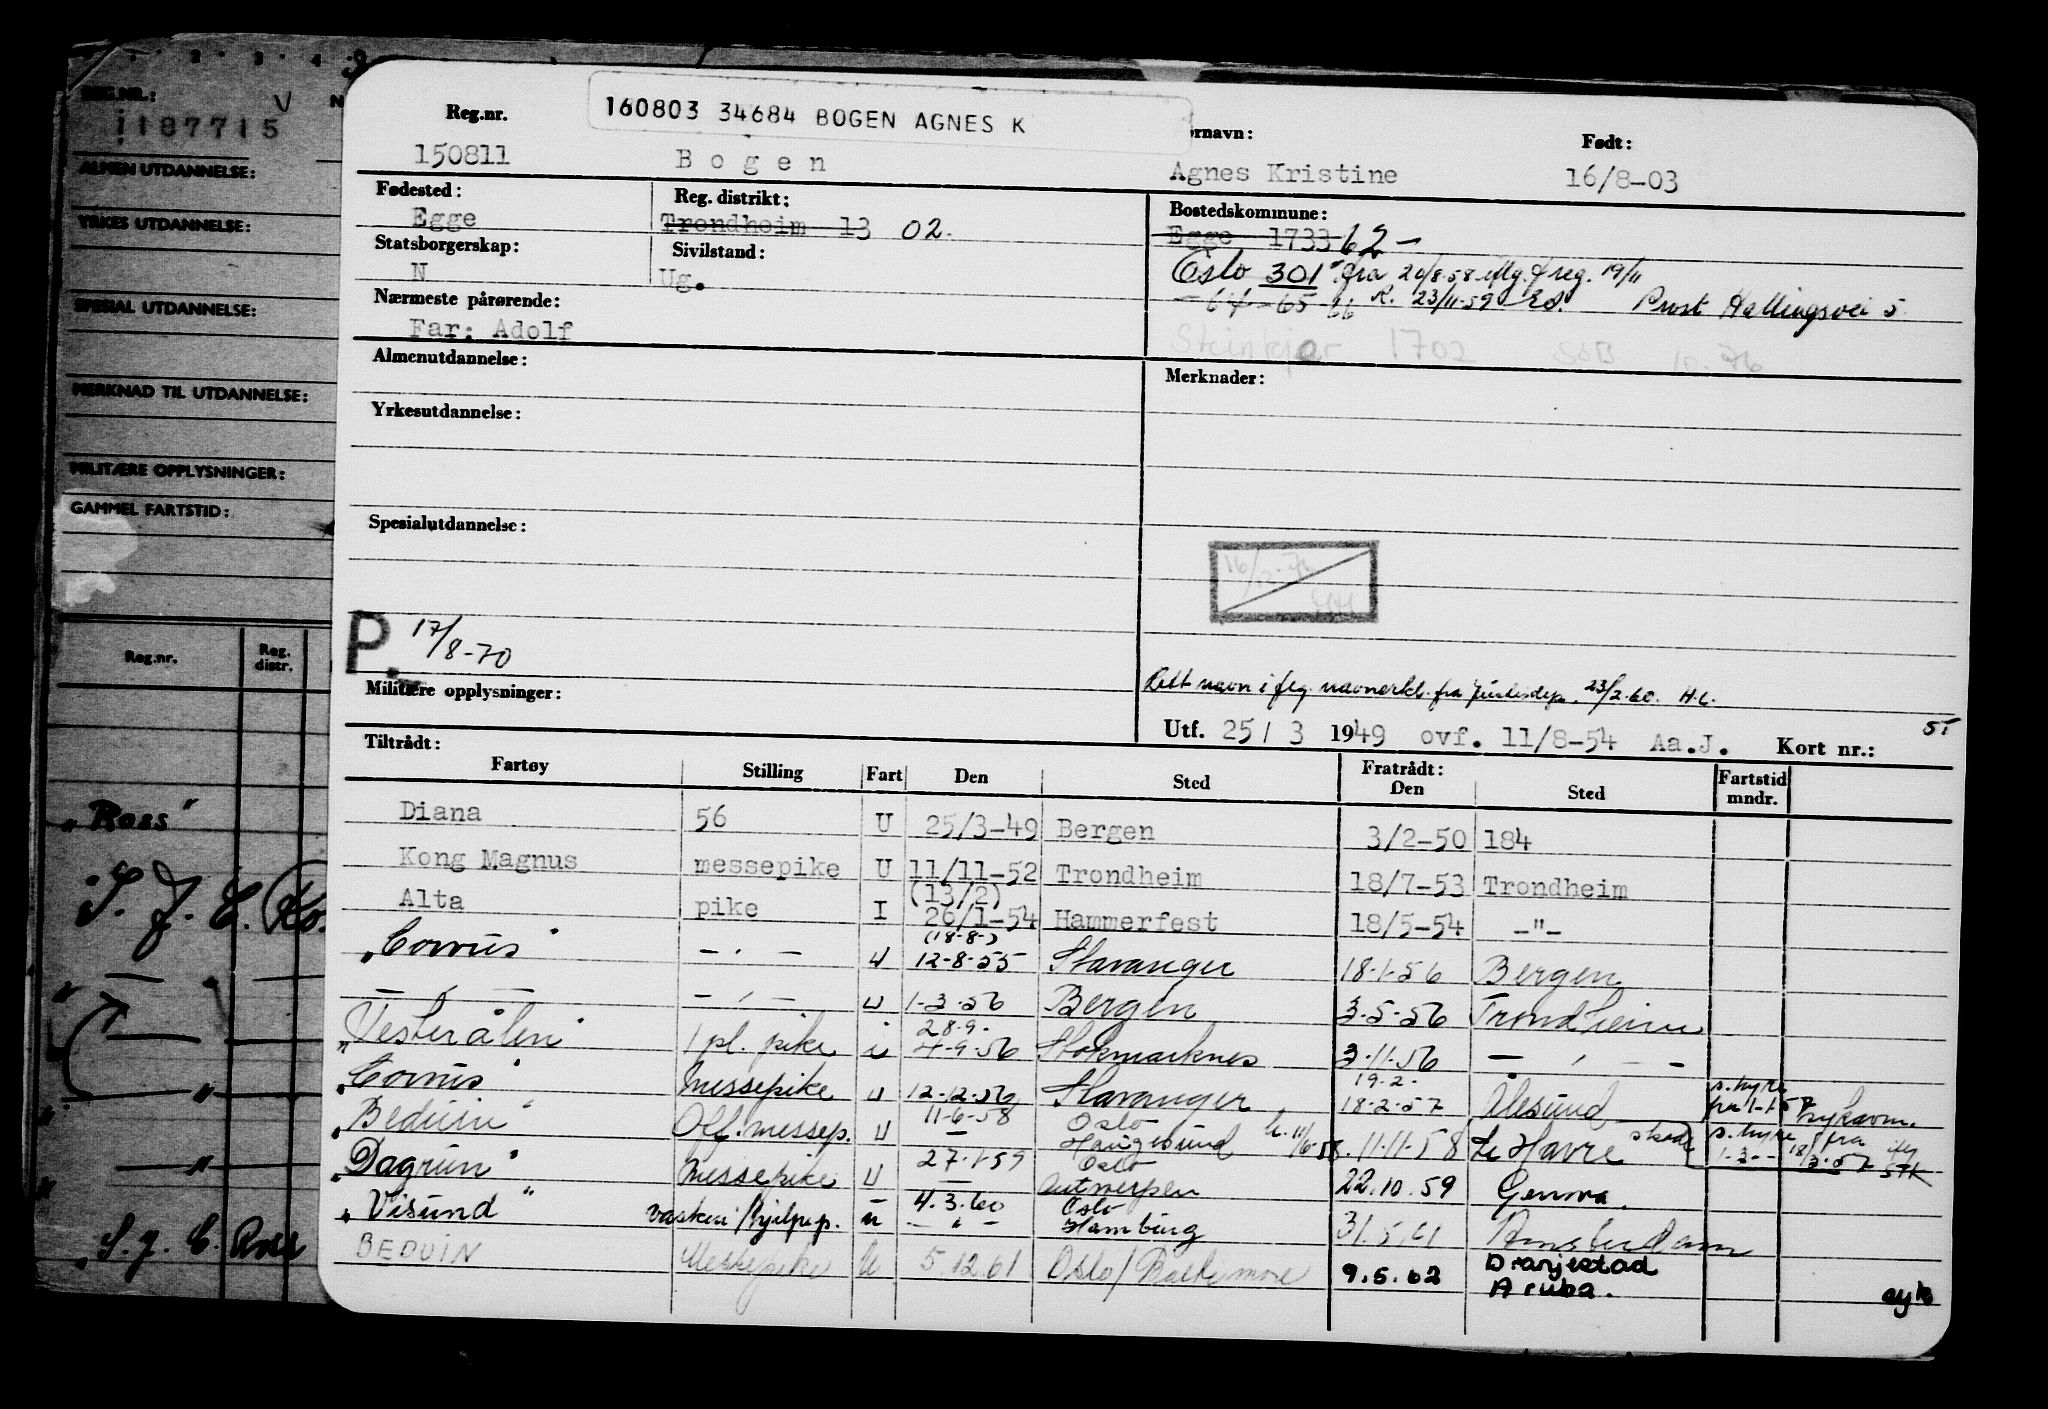 2 3 4
REG.NR.:
187715
ALMEN UTDANNELSE:
YRKES UTDANNELSE:
SPESIAL UTDANNELSE:
MERKNAD TIL UTDANNELSE:
MILITÆRE OPPLYSNINGER:
GAMMEL FARTSTID:
Reg.nr. Reg. distr.
„Ross"
160803 34684 BOGEN AGNES K
Reg.nr. ornavn: Født:
150811 Bogen Agnes Kristine 16/8-03
Fødested: Reg. distrikt: Bostedskommune:
Egge Trondheim 13 02. Egge 1733 62 –
Statsborgerskap: Sivilstand:
N Ug. Oslo 301 fra 20/8-58 iflg. freg. 19/11
– 64 – 65 66 R. 23/11-59 Prost Hallingsvei 5
Nærmeste pårørende:
Far: Adolf Steinkjer 1702 SOB 10.76
Almenutdannelse: Merknader:
Yrkesutdannelse:
Spesialutdannelse:
P. 17/8-70
Militære opplysninger:
Rett navn iflg. navnerkl. fra Justisdep. 23/2-60. H.L.
Utf. 25 / 3 1949 ovf. 11/8-54 Aa.J. Kort nr.:
Tiltrådt: Fratrådt:
Fartøy Stilling Fart Den Sted Den Sted Fartstid mndr.
Diana 56 U 25/3-49 Bergen 3/2-50 184
Kong Magnus messepike U 11/11-52 Trondheim 18/7-53 Trondheim
Alta pike I (13/2) 26/1-54 Hammerfest 18/5-54 -"-
„Corvus" – " – u (18-8-) 12-8-55 Stavanger 18-1-56 Bergen
– " – – " – u 1-3-56 Bergen 3-5-56 Trondheim
„Vesterålen" 1 pl. pike i 28.9. 4-9-56 Stokmarknes 3-11-56 – " –
„Corvus" Messepike u 12-12-56 Stavanger 19.2. 18-2-57 Ålesund s.hyre fra 1-1-57
„Beduin" Off.messep. u 11-6-58 Oslo Haugesund 11-11-58 Le Havre s.hyre fra
„Dagrun" Messepike u 27-1-59 Oslo Antwerpen 22.10.59 Genova.
„Visund" vaskeri/hjelpep. u 4.3.60 Oslo Hamburg 31.5.61 Amsterdam
BEDUIN Messepike U 5.12.61 Oslo/Baltimore 9.5.62 Oranjestad Aruba. syk